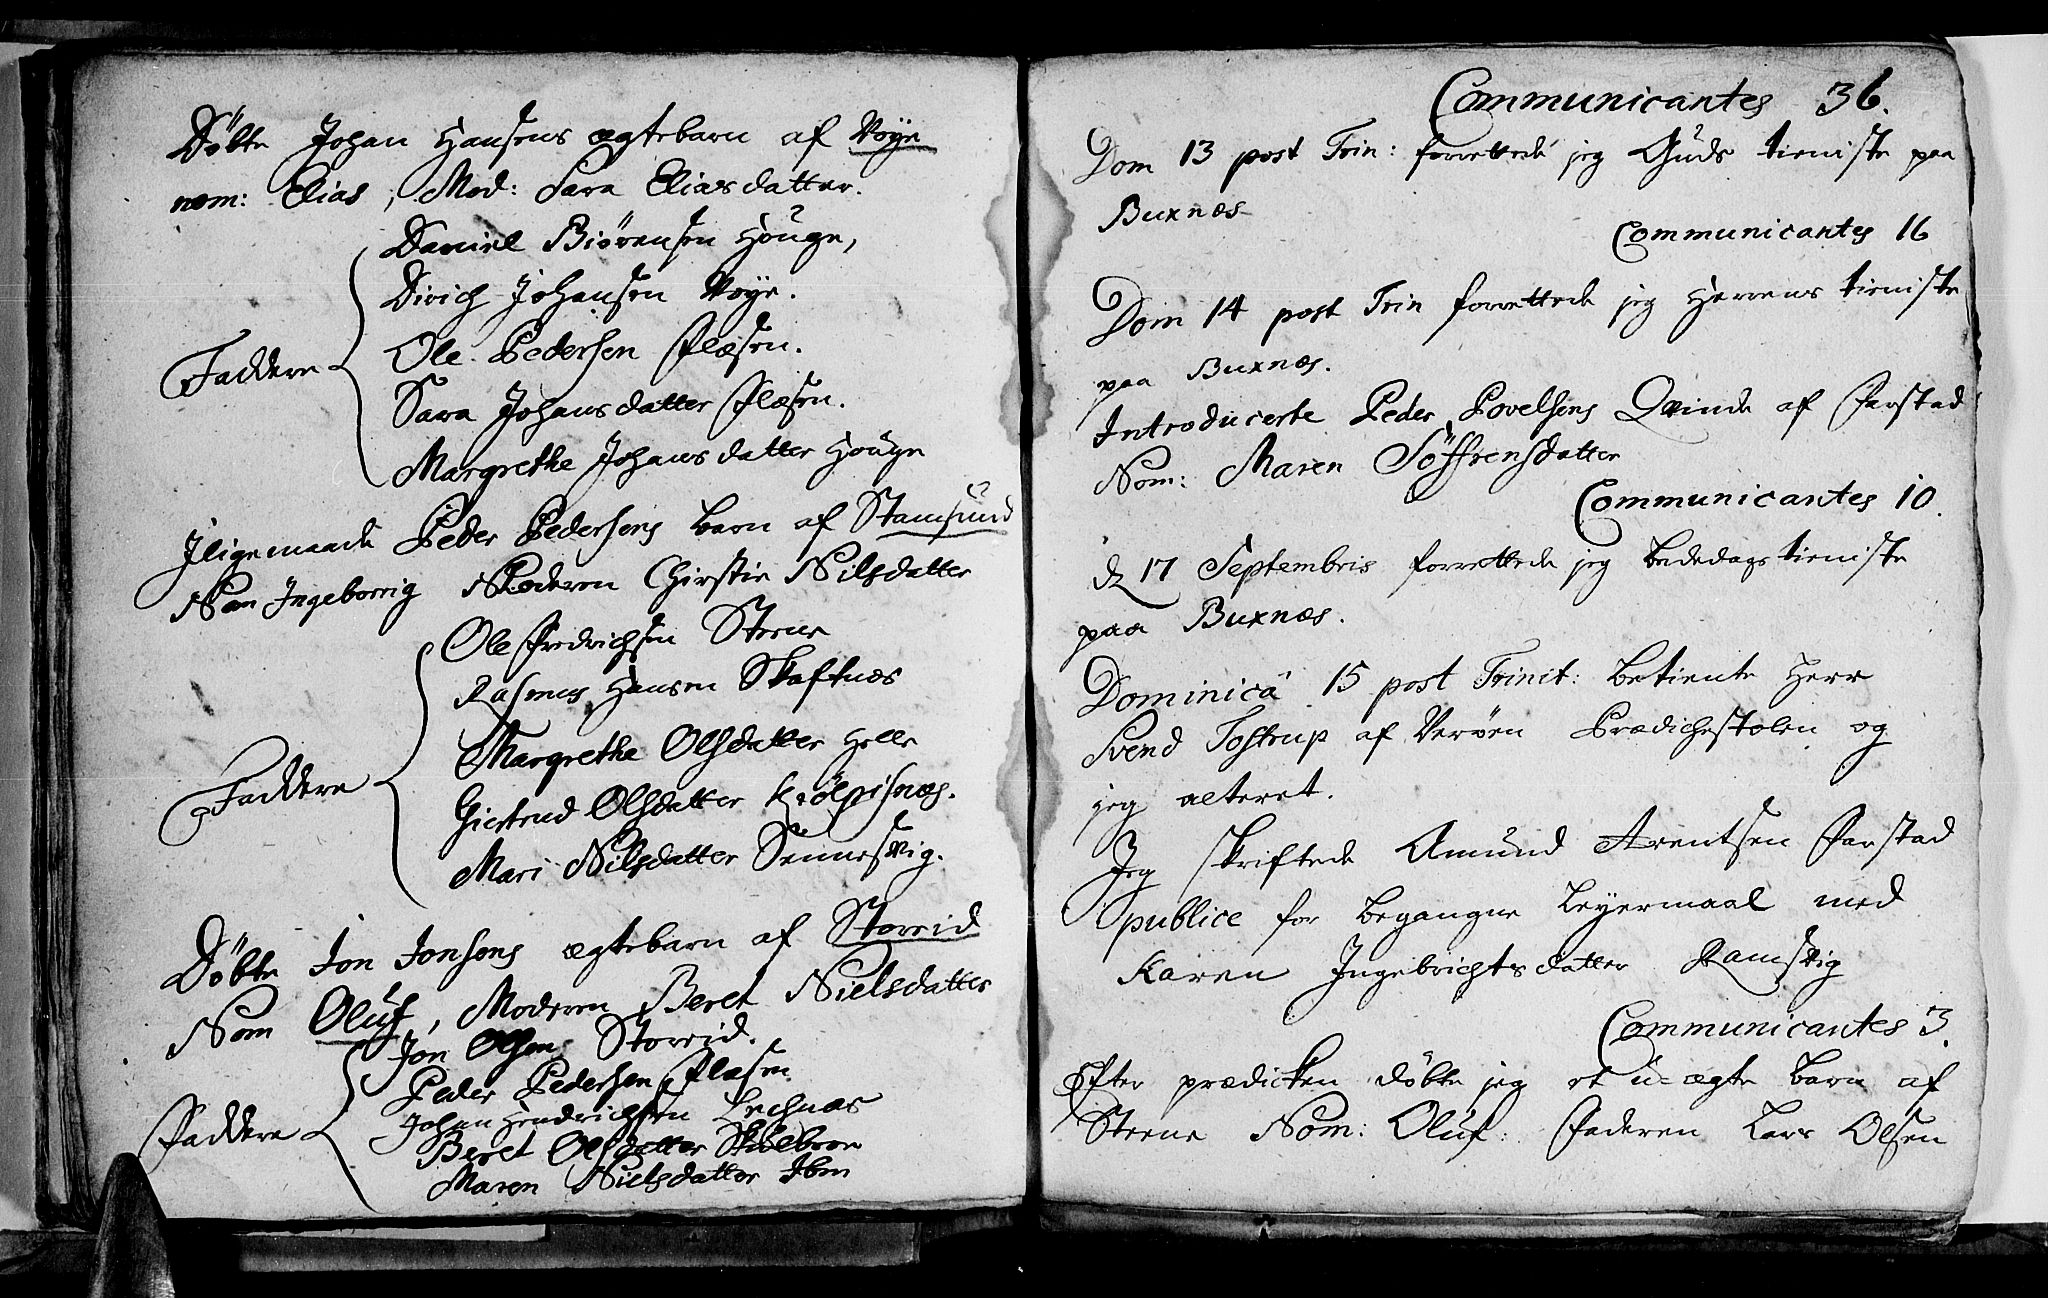 Döbte Johan Hansens ægtebarn af Vøye
nom: Elias, Mod: Sara Eliasdatter.
Daniel Biörensen Houge,
Dirich Johansen Vøye.
Ole Pedersen Flæsen.
Faddere
Sara Johansdatter Flæsen.
Margrethe Johansdatter Houge
Iligemaade Peder Pedersens barn af Stamsund
Nom Ingeborrig Moderen Chirstie Nilsdatter
Ole Fredrichsen Steene
Rasmus Hansen Skaftnæs
Margrethe Olsdatter Helle
Faddere
Giertrud Olsdatter
Mari Nilsdatter Sennesvig.
Döbte Jon Jonsens ægtebarn af Storeid
Nom Oluf, Moderen Beret Nielsdatter
Jon Olsen Storeid.
Peder Pedersen Flæsen.
Johan Hendrichsen Lechnæs
Faddere
Beret Olsdatter
Maren Nielsdatter Ibm
Communicantes 36.
Dom 13 post Trin: forrettede jeg Guds tieniste paa
Buxnæs
Communicantes 16
Dom 14 post Trin forrettede jeg Herrens tieniste
paa Buxnæs.
Introducerte Peder Povelsens Qvinde af Farstad
Nom: Maren Söffrensdatter
Communicantes 10.
d 17 Septembris forrettede jeg bededags tieniste
paa Buxnæs.
Dominica 15 post Trinit: betiente Herr
Svend Tostrup af Verøen Prædichestolen og
jeg alteret.
Jeg skriftede Amund Arentsen Farstad
publice for begangne Leyermaal med
Karen Ingebrichtsdatter Ramsvig
Communicantes 3.
Efter prædicken döbte jeg et u-ægte barn af
Steene Nom: Oluf: Faderen Lars Olsen